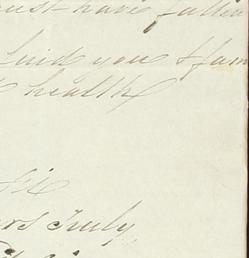 ust have fallen
find you & fam
health
Sir
urs Truly